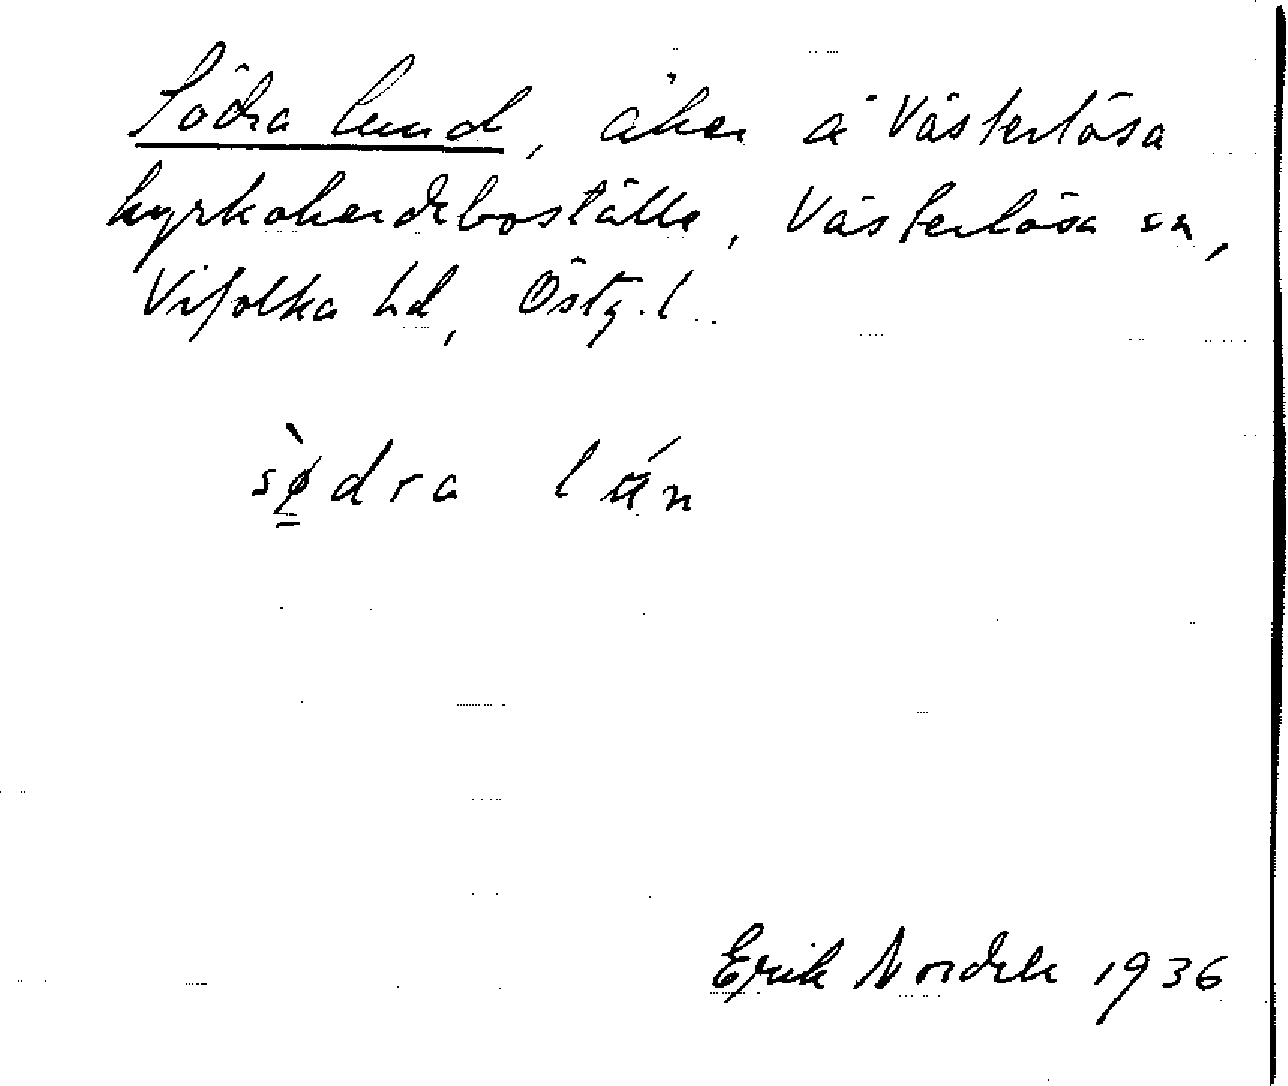 Södra lund, åker å Västerlösa
kyrkoherdeboställe, Västerlösa sn,
Vifolka hd, Östg.l.
sø̀dra lán
Erik Nordele 1936